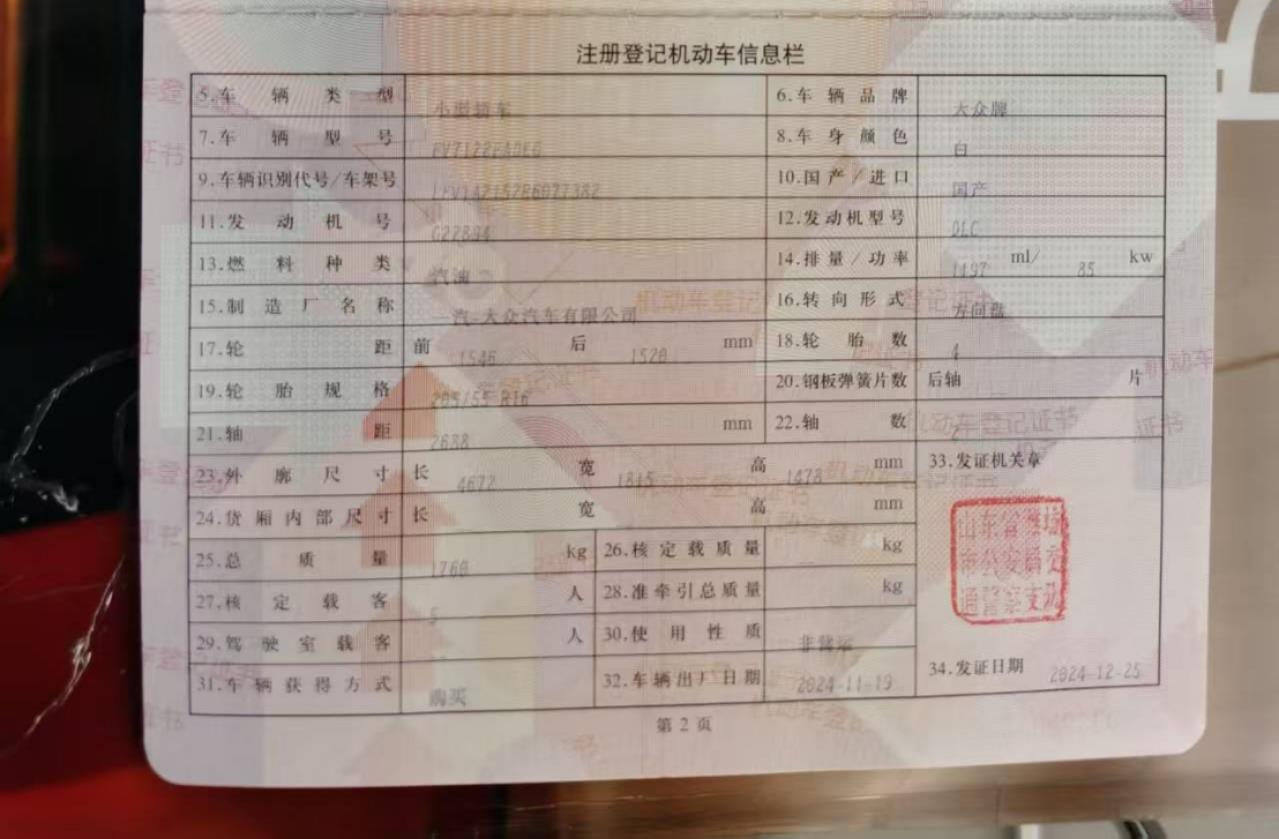 注册登记机动车信息栏
5.车辆类型 小型轿车 6.车辆品牌 大众牌
7.车辆型号 8.车身颜色 白
9.车辆识别代号/车架号 10.国产/进口 国产
11.发动机号 12.发动机型号 DLC
13.燃料种类 汽油 14.排量/功率 1497 ml/ 85 kw
15.制造厂名称 一汽-大众汽车有限公司 16.转向形式 方向盘
17.轮距 前 1546 后 1520 mm 18.轮胎数 4
19.轮胎规格 205/55 R16 20.钢板弹簧片数 后轴 片
21.轴距 2688 mm 22.轴数 2
23.外廓尺寸 长 4672 宽 1815 高 1478 mm 33.发证机关章
24.货厢内部尺寸 长 宽 高 mm
25.总质量 1760 kg 26.核定载质量 kg
27.核定载客 5 人 28.准牵引总质量 kg
29.驾驶室载客 人 30.使用性质 非营运
31.车辆获得方式 购买 32.车辆出厂日期 2024-11-19 34.发证日期 2024-12-25
山东省潍坊
市公安局交
通警察支队
第 2 页